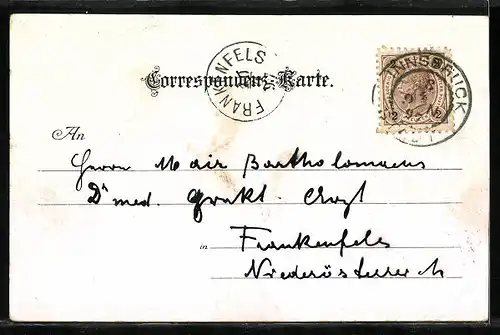 FRANKENFELS
INNSBRUCK
Correspondenz-Karte.
An
Herrn Mair Bartholomaeus
Dr med. prakt. Arzt
in Frankenfels
Niederösterreich